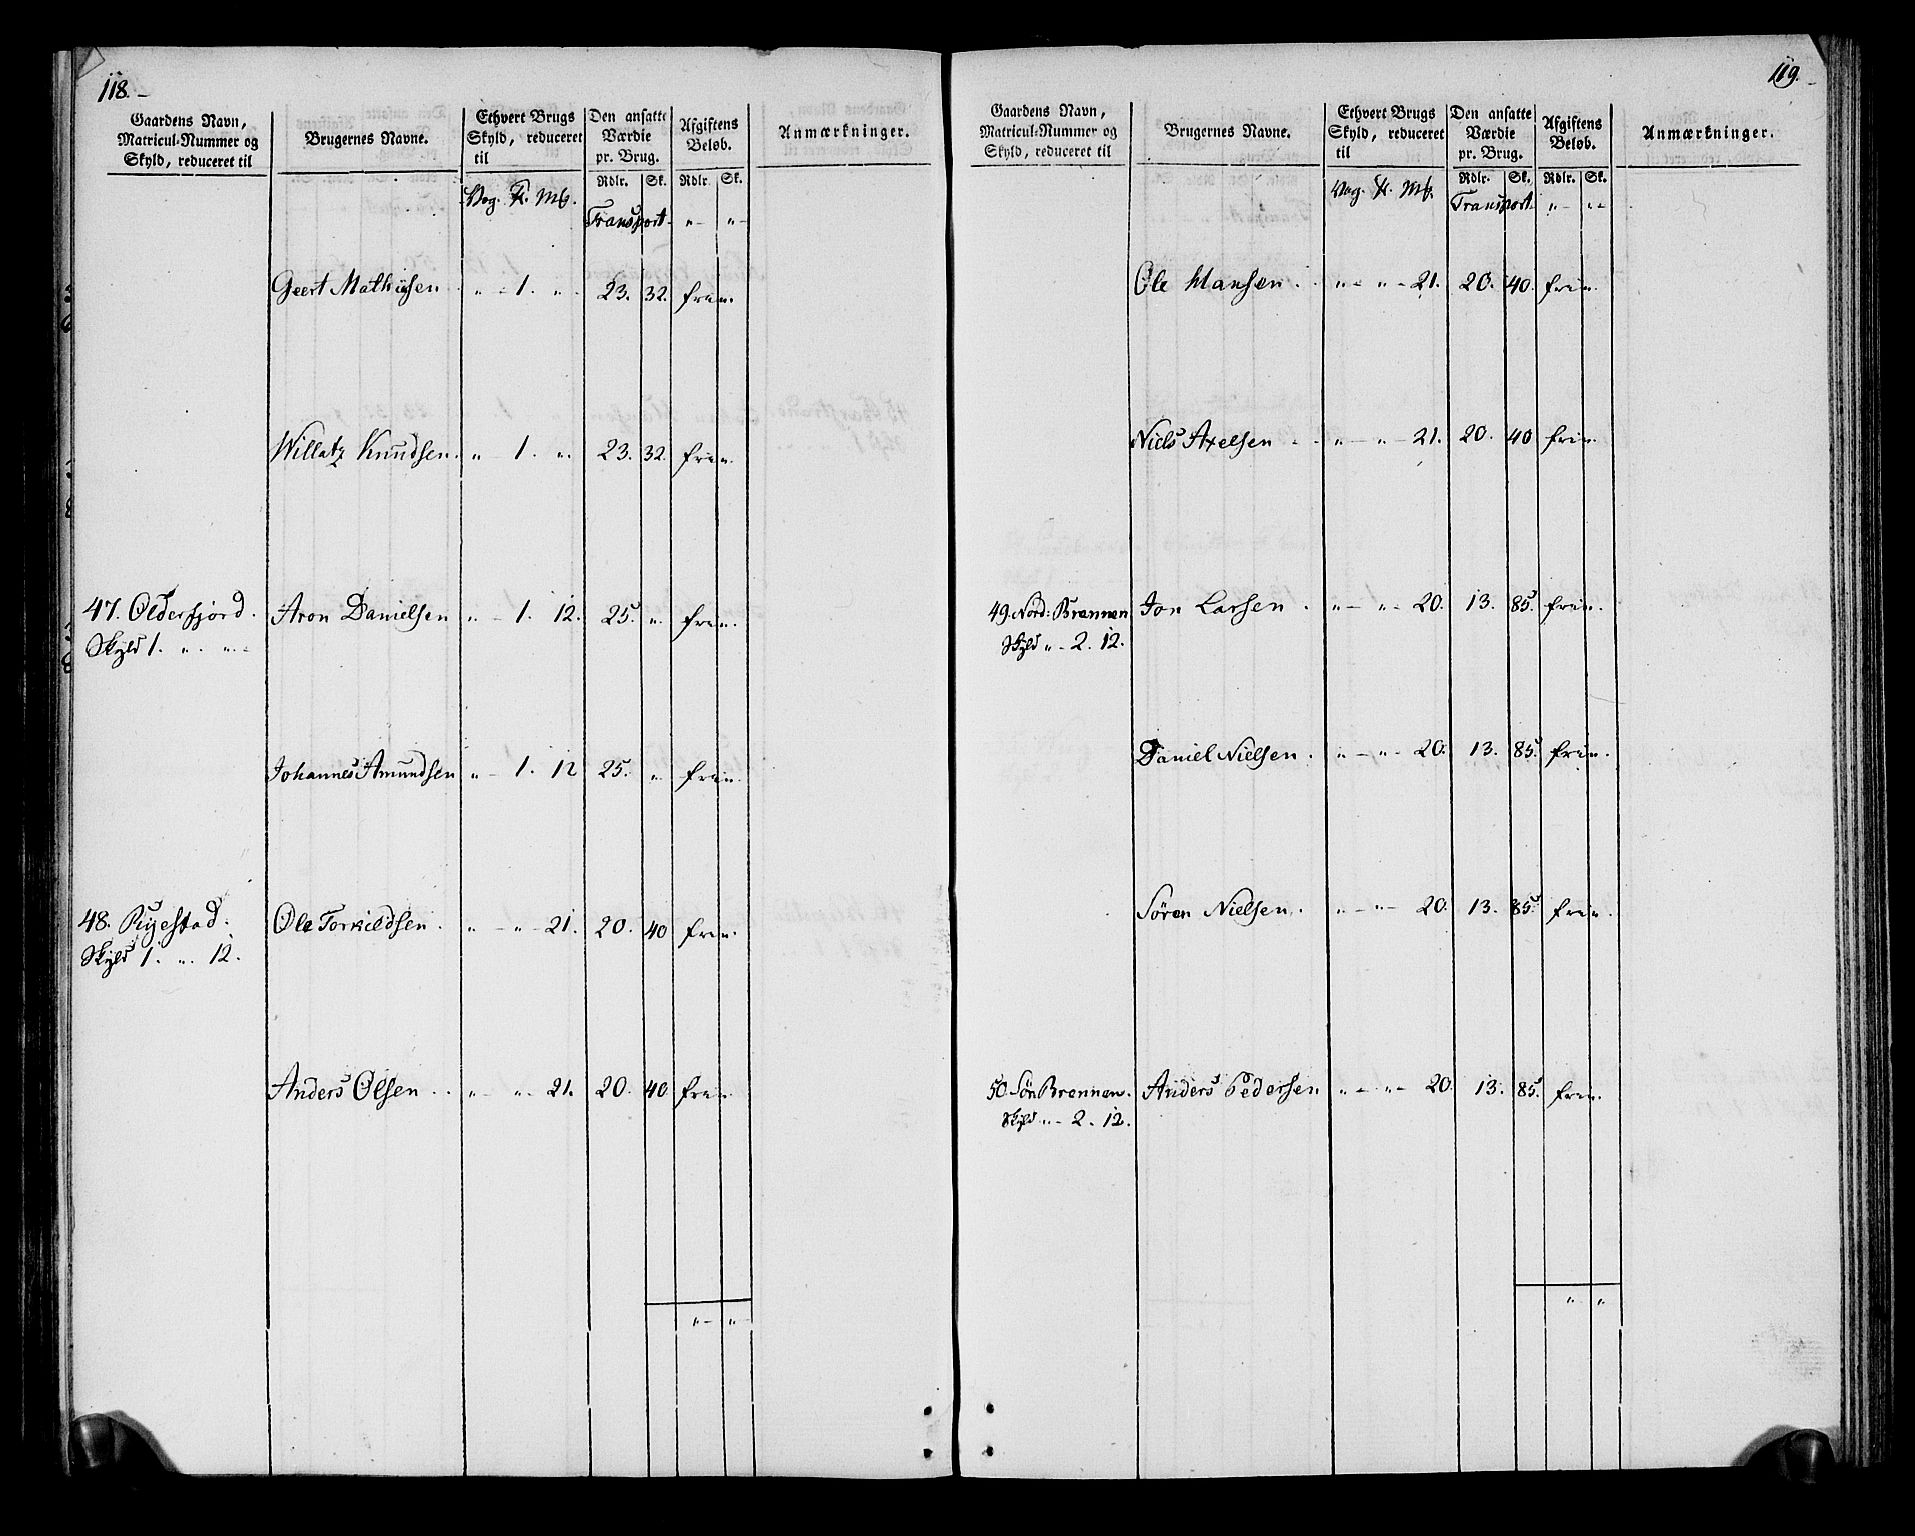 118.
Gaardens Navn, Matricul-Nummer og Skyld, reduceret til
Brugernes Navne.
Ethvert Brugs Skyld, reduceret til
Den ansatte Værdie pr. Brug.
Afgiftens Beløb.
Anmærkninger.
Rdlr. Sk. Rdlr. Sk.
Vog. Mk.
Transport - " - " -
Geert Mathisen " - 1. " 23. 32. frie.
Willatz Knudsen. " - 1. " 23. 32. frie.
47. Oldersfjord. Aron Danielsen " - 1. 12. 25. " frie.
Skyld 1. " . " -
Johannes Amundsen " - 1. 12 25. " frie.
48. Ryestad. Ole Torkildsen. " - " - 21. 20. 40 frie.
Skyld 1. " . 12.
Anders Olsen . . " - " - 21. 20. 40. frie.
" - " -
119.
Gaardens Navn, Matricul-Nummer og Skyld, reduceret til
Brugernes Navne.
Ethvert Brugs Skyld, reduceret til
Den ansatte Værdie pr. Brug.
Afgiftens Beløb.
Anmærkninger.
Rdlr. Sk. Rdlr. Sk.
Vog. Mk.
Transport - " - " -
Ole Hansen . " - " - 21. 20. 40. frie.
Niels Axelsen . " - " - 21. 20. 40 frie.
49. Nord: Brennen Jon Larsen . " - " - 20. 13. 85. frie.
Skyld " - 2. 12.
Daniel Nielsen . " - " - 20. 13. 85. frie.
Søren Nielsen . " - " - 20. 13. 85. frie.
50. Søn Brennen. Anders Pedersen " - " - 20. 13. 85. frie.
Skyld " - 2. 12.
" - "